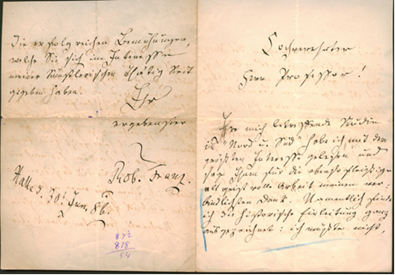 Hochverehrter
Herr Professor!
Ihre mich betreffende Studie
in Nord u. Süd habe ich mit dem
größten Interesse gelesen und
sage Ihnen für die ebenso fleißige
als geistvolle Arbeit meinen ver-
bindlichsten Dank. Namentlich finde
ich die historische Einleitung ganz
ausgezeichnet: ich wüßte nicht,
Die erfolgreichen Bemühungen,
welche Sie sich im Interesse
meiner künstlerischen Thätigkeit
gegeben haben.
Ihr
ergebenster
Rob. Franz.
Halle d. 30t Jun. 86.